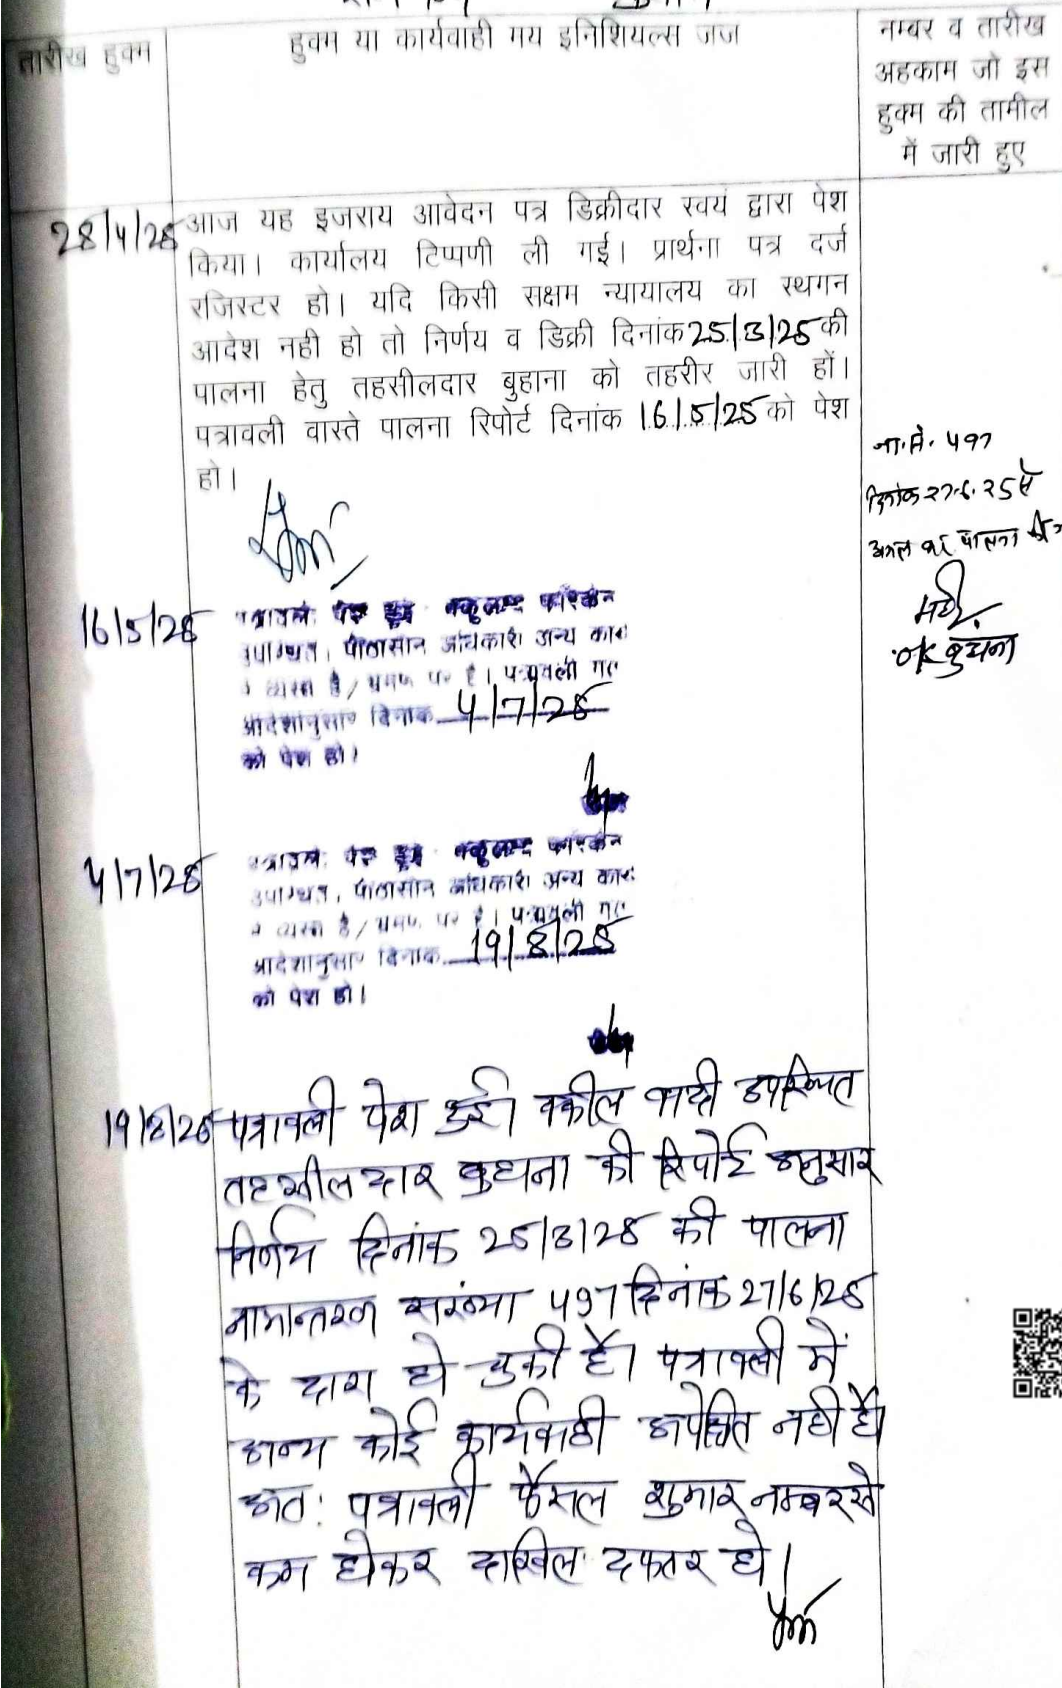 तारीख हुक्म
हुक्म या कार्यवाही मय इनिशियल्स जज
नम्बर व तारीख
अहकाम जो इस
हुक्म की तामील
में जारी हुए
28/4/25
आज यह इजराय आवेदन पत्र डिक्रीदार स्वयं द्वारा पेश
किया। कार्यालय टिप्पणी ली गई। प्रार्थना पत्र दर्ज
रजिस्टर हो। यदि किसी सक्षम न्यायालय का स्थगन
आदेश नही हो तो निर्णय व डिक्री दिनांक 25/3/25 की
पालना हेतु तहसीलदार बुहाना को तहरीर जारी हों।
पत्रावली वास्ते पालना रिपोर्ट दिनांक 16/5/25 को पेश
हो।
ना.सं. 497
दिनांक 27.6.25 से
पालना
बुहाना
16/5/25
पेश हुई
उपस्थित, पीठासीन अधिकारी अन्य कार्य
व्यस्त है/भ्रमण पर है। पत्रावली
आदेशानुसार दिनांक 4/7/25
को पेश हो।
4/7/25
पेश हुई
उपस्थित, पीठासीन अधिकारी अन्य कार्य
व्यस्त है/भ्रमण पर है। पत्रावली
आदेशानुसार दिनांक 19/8/25
को पेश हो।
19/8/25
पत्रावली पेश हुई। वकील वादी उपस्थित
तहसीलदार बुहाना की रिपोर्ट अनुसार
निर्णय दिनांक 25/3/25 की पालना
नामान्तरण संख्या 497 दिनांक 27/6/25
के द्वारा हो चुकी है। पत्रावली में
अन्य कोई कार्यवाही अपेक्षित नही है।
अत: पत्रावली फैसल शुमार नम्बर से
कम होकर दाखिल दफ्तर हो।